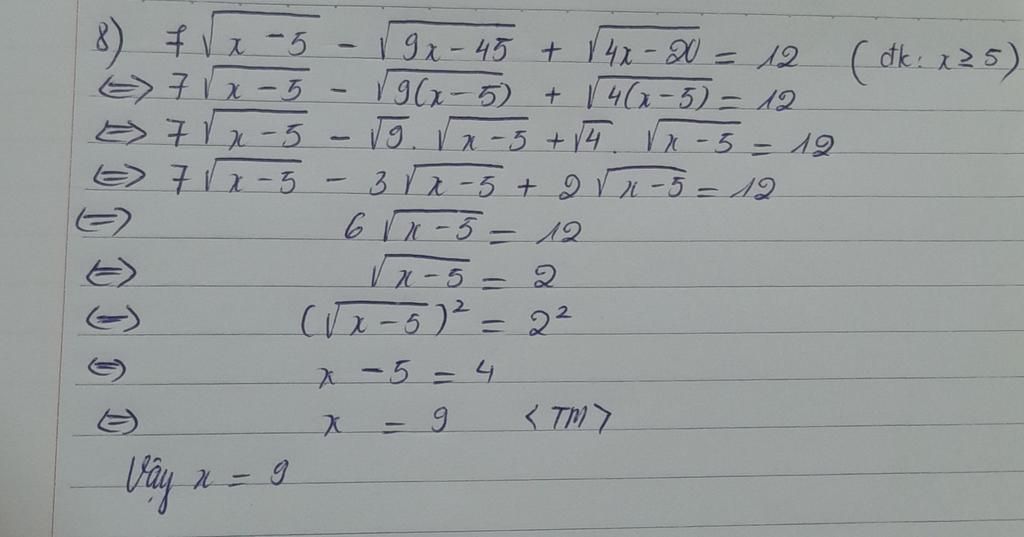 8) 7√(x-5) - √(9x-45) + √(4x-20) = 12 (đk: x ≥ 5)
<=> 7√(x-5) - √(9(x-5)) + √(4(x-5)) = 12
<=> 7√(x-5) - √9 . √(x-5) + √4 . √(x-5) = 12
<=> 7√(x-5) - 3√(x-5) + 2√(x-5) = 12
<=> 6√(x-5) = 12
<=> √(x-5) = 2
<=> (√(x-5))² = 2²
<=> x - 5 = 4
<=> x = 9 <TM>
Vậy x = 9